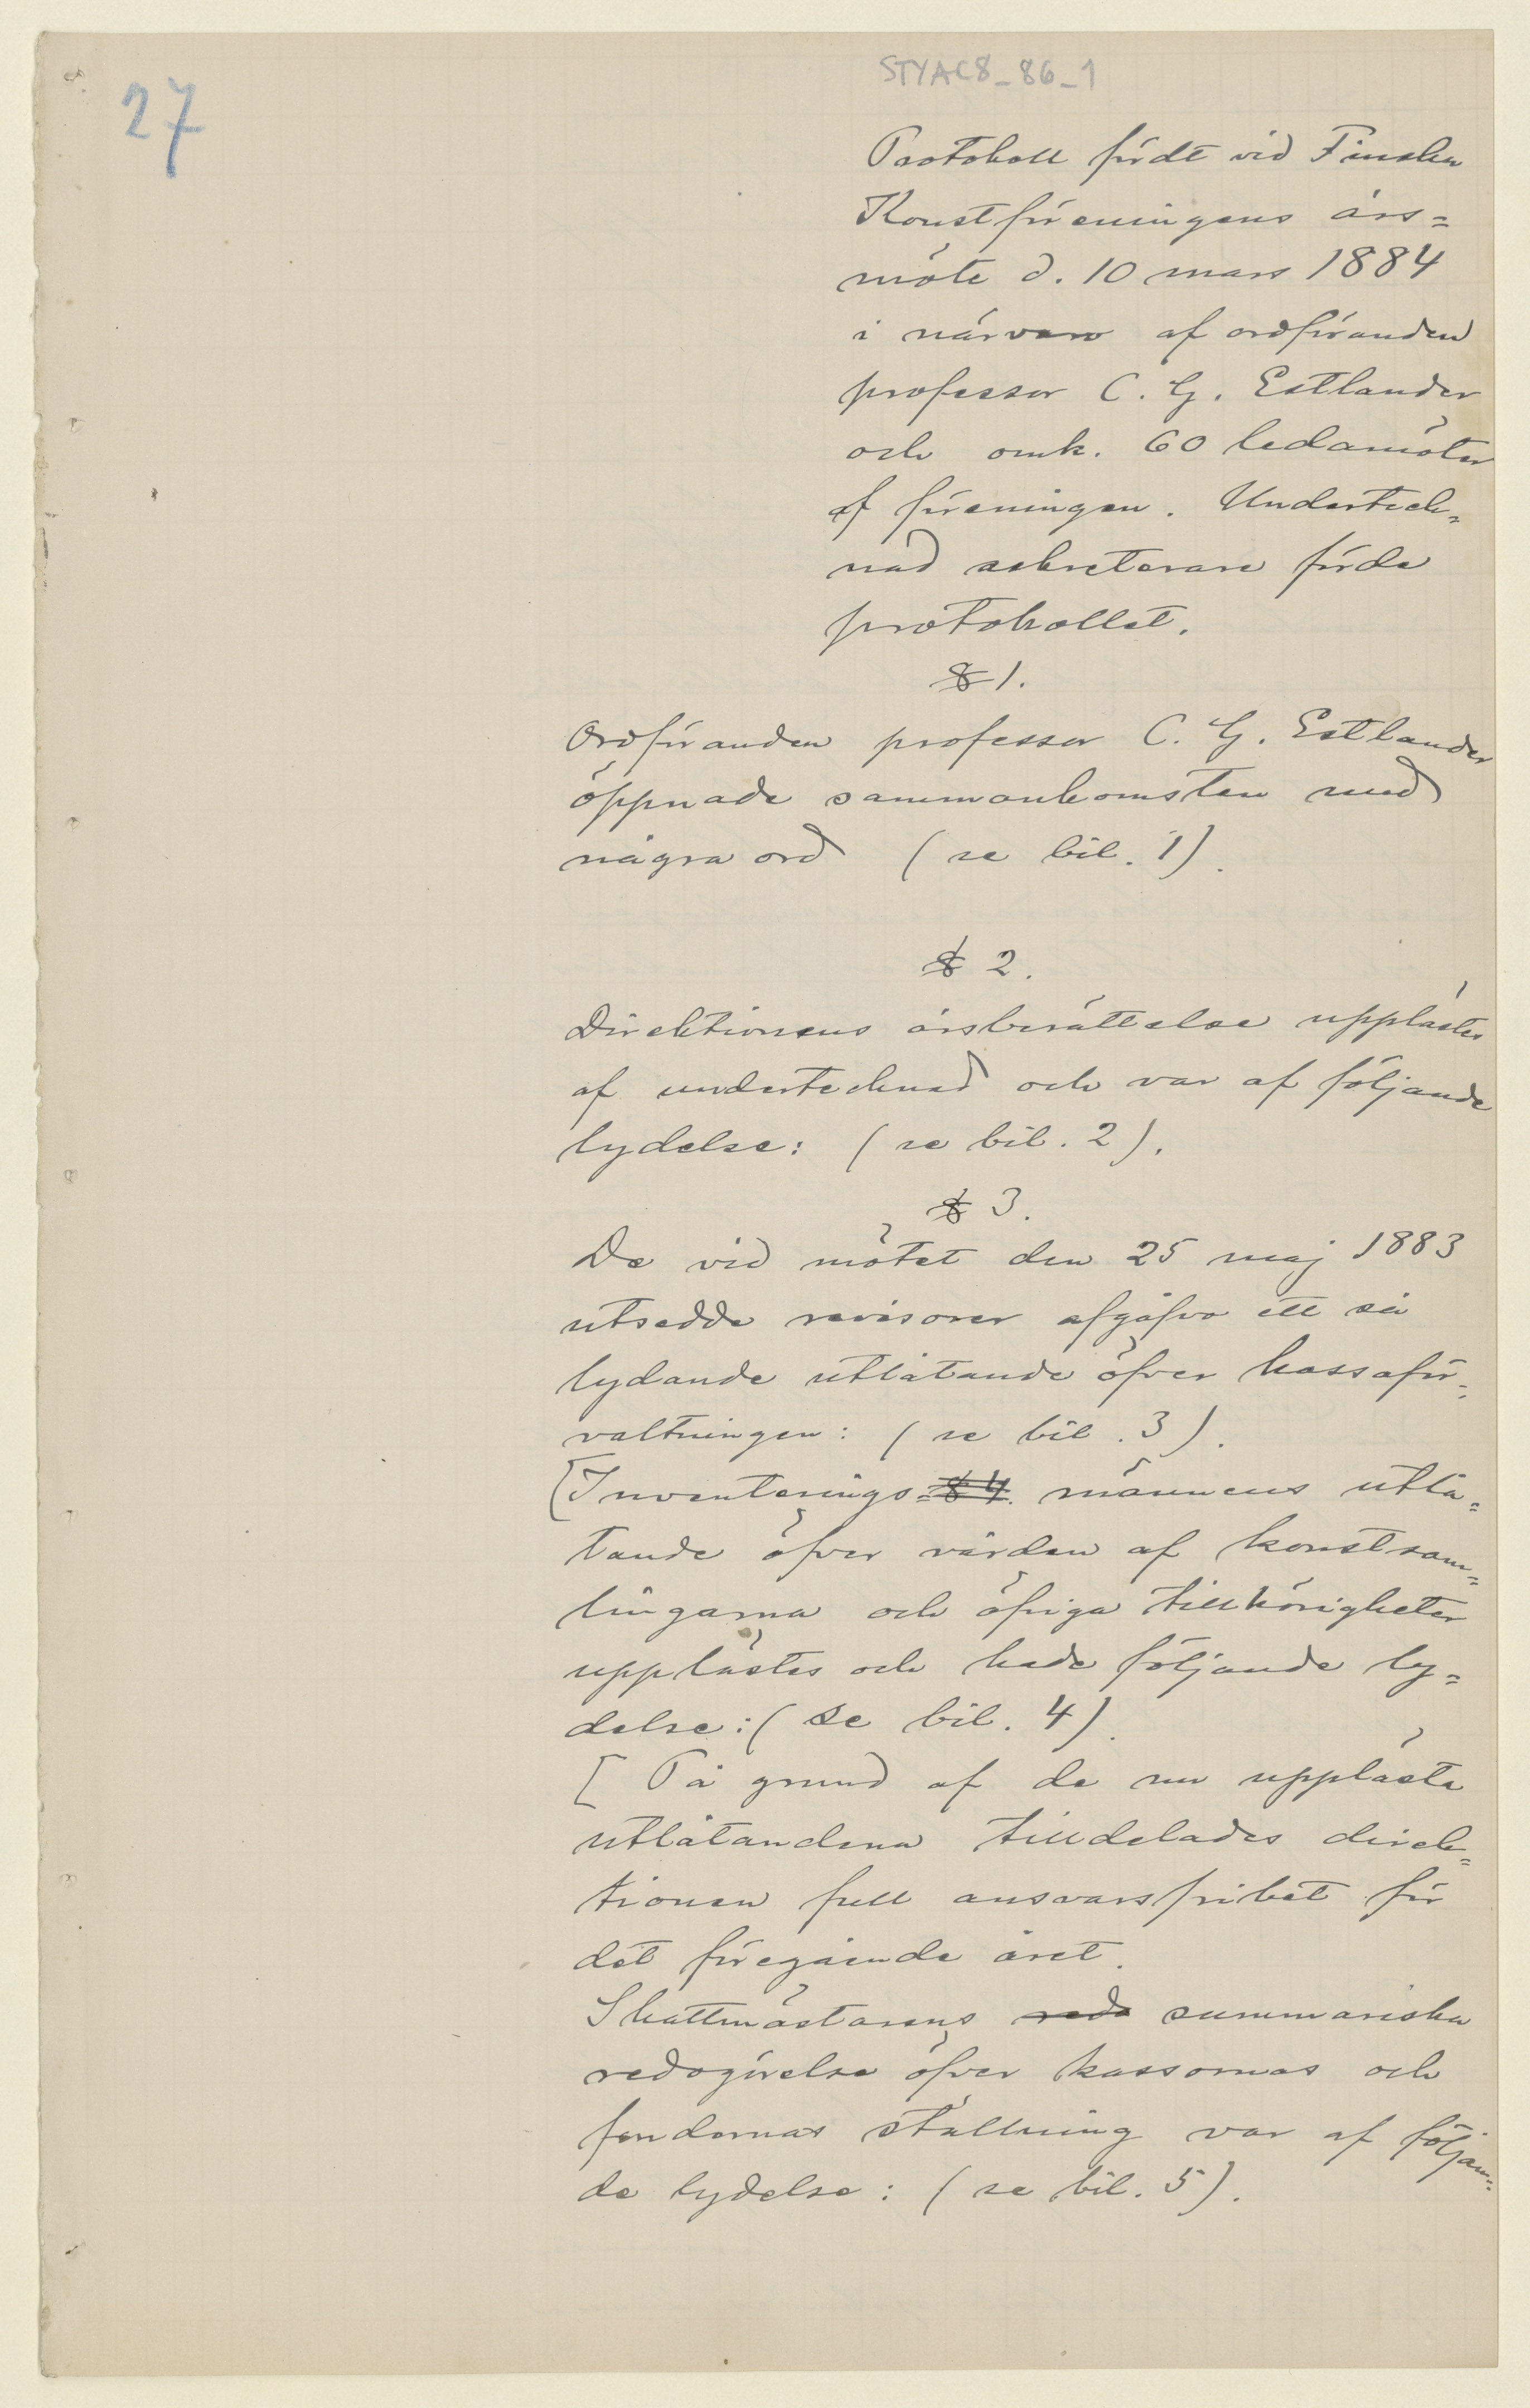 STYAC8_86_1
27
Protokoll fördt vid Finska
Konstföreningens års=
möte d. 10 mars 1884
i närvaro af ordföranden
professor C. G. Estlander
och omk. 60 ledamöter
af föreningen. Underteck=
nad sekreterare förde
protokollet.
§ 1.
Ordföranden professor C. G. Estlander
öppnade sammankomsten med
några ord (se bil. 1).
§ 2.
Direktionens årsberättelse upplästes
af undertecknad och var af följande
lydelse: (se bil. 2).
§ 3.
De vid mötet den 25 maj 1883
utsedde revisorer afgåfvo ett så
lydande utlåtande öfver kassaför=
valtningen: (se bil. 3).
[Inventerings= § 4. männens utlå=
tande öfver vården af konstsam=
lingarna och öfriga tillhörigheter
upplästes och hade följande ly=
delse: (se bil. 4).
[ På grund af de nu upplästa
utlåtandena tilldelades direk=
tionen full ansvarsfrihet för
det föregående året.
Skattmästarens redo summariska
redogörelse öfver kassornas och
fondernas ställning var af följan=
de lydelse: (se bil. 5).